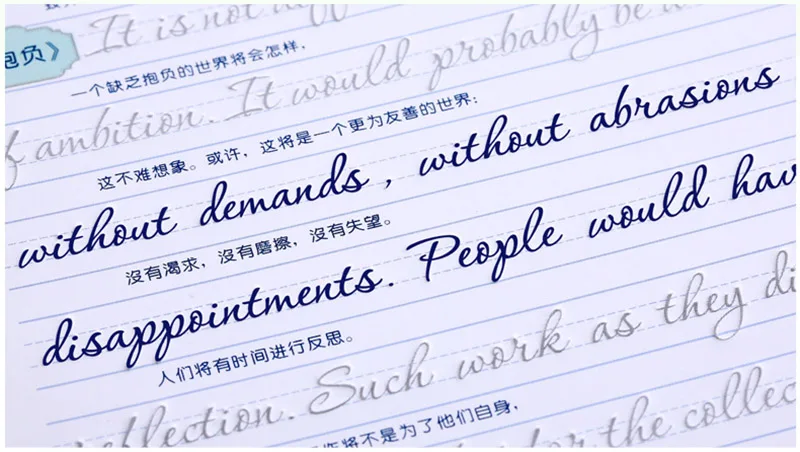 抱负》
It is not
一个缺乏抱负的世界将会怎样,
ambition. It would probably be
这不难想象。或许，这将是一个更为友善的世界:
without demands, without abrasions
没有渴求，没有磨擦，没有失望。
disappointments. People would hav
人们将有时间进行反思。
flection. Such work as they di
将不是为了他们自身,
for the collec